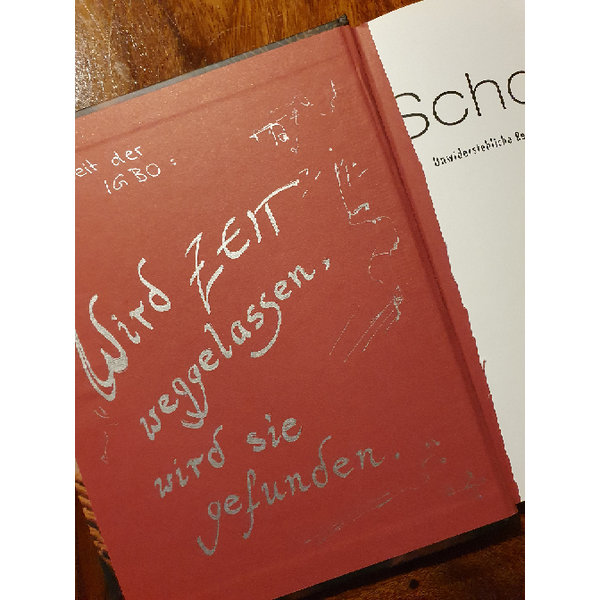 eit der
IGBO:
Wird ZEIT
weggelassen,
wird sie
gefunden.
Scho
Unwiderstehliche Re